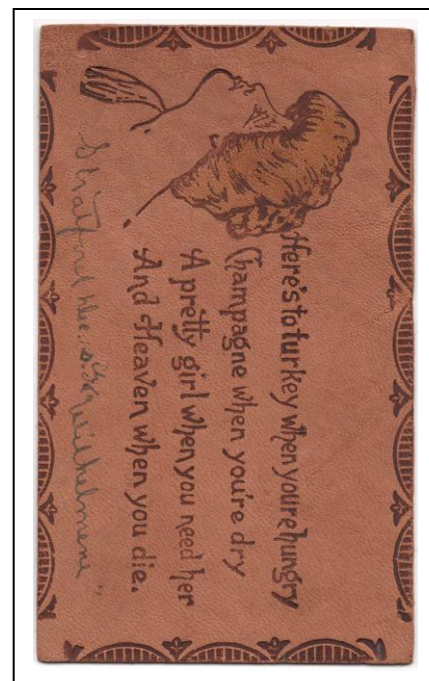 Here's to turkey when youre hungry
Champagne when you're dry
A pretty girl when you need her
And Heaven when you die.
Stratford Dec. Wilhelmene